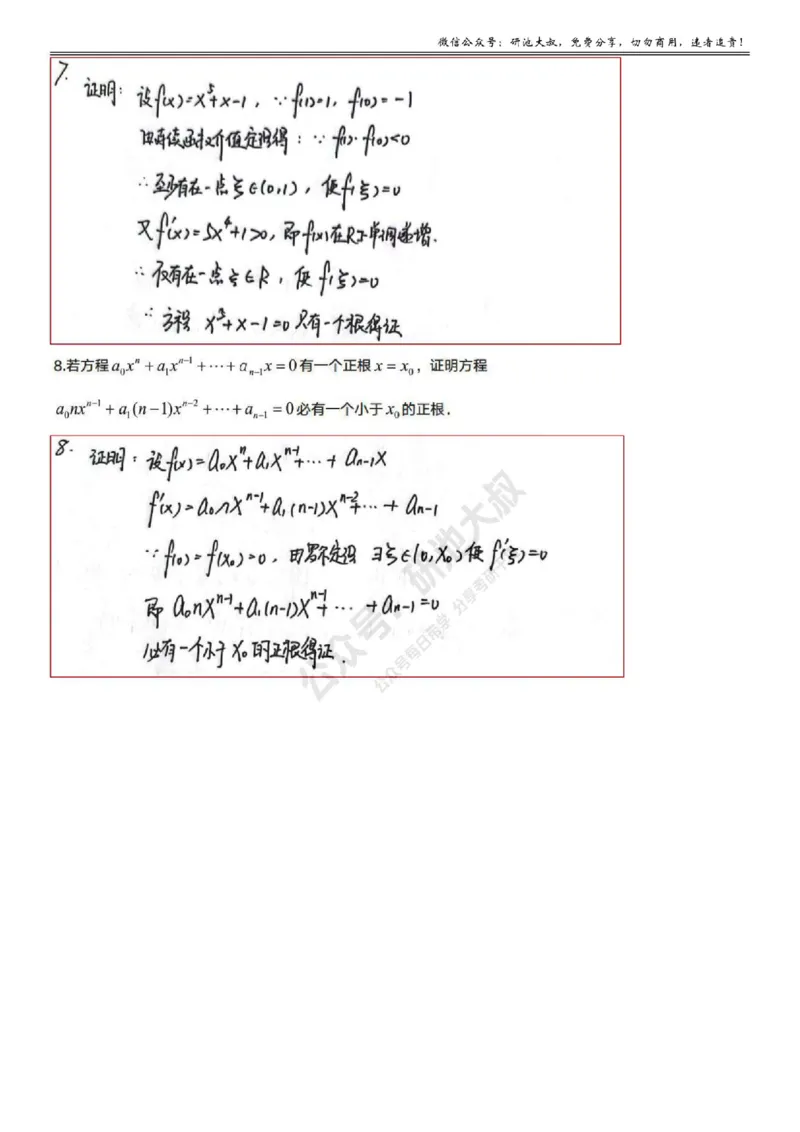 微信公众号：研池大叔，免费分享，切勿商用，违者追责！
7.
证明：设f(x)=x⁵+x-1，∵f(1)=1，f(0)=-1
由连续函数介值定理得：∵f(1)·f(0)<0
∴至少存在一点ξ∈(0,1)，使f(ξ)=0
又f'(x)=5x⁴+1>0，即f(x)在R上单调递增.
∴仅有在一点ξ∈R，使f(ξ)=0
∴方程 x⁵+x-1=0只有一个根得证
8.若方程a₀xⁿ+a₁xⁿ⁻¹+⋯+aₙ₋₁x=0有一个正根x=x₀，证明方程
a₀nxⁿ⁻¹+a₁(n-1)xⁿ⁻²+⋯+aₙ₋₁=0必有一个小于x₀的正根.
8. 证明：设f(x)=a₀xⁿ+a₁xⁿ⁻¹+⋯+aₙ₋₁x
f'(x)=a₀nxⁿ⁻¹+a₁(n-1)xⁿ⁻²+⋯+aₙ₋₁
∵f(0)=f(x₀)=0，由罗尔定理 ∃ξ∈(0,x₀)使f'(ξ)=0
即 a₀nxⁿ⁻¹+a₁(n-1)xⁿ⁻¹+⋯+aₙ₋₁=0
必有一个小于x₀的正根得证.
公众号：研池大叔
公众号每日带学 分享考研干